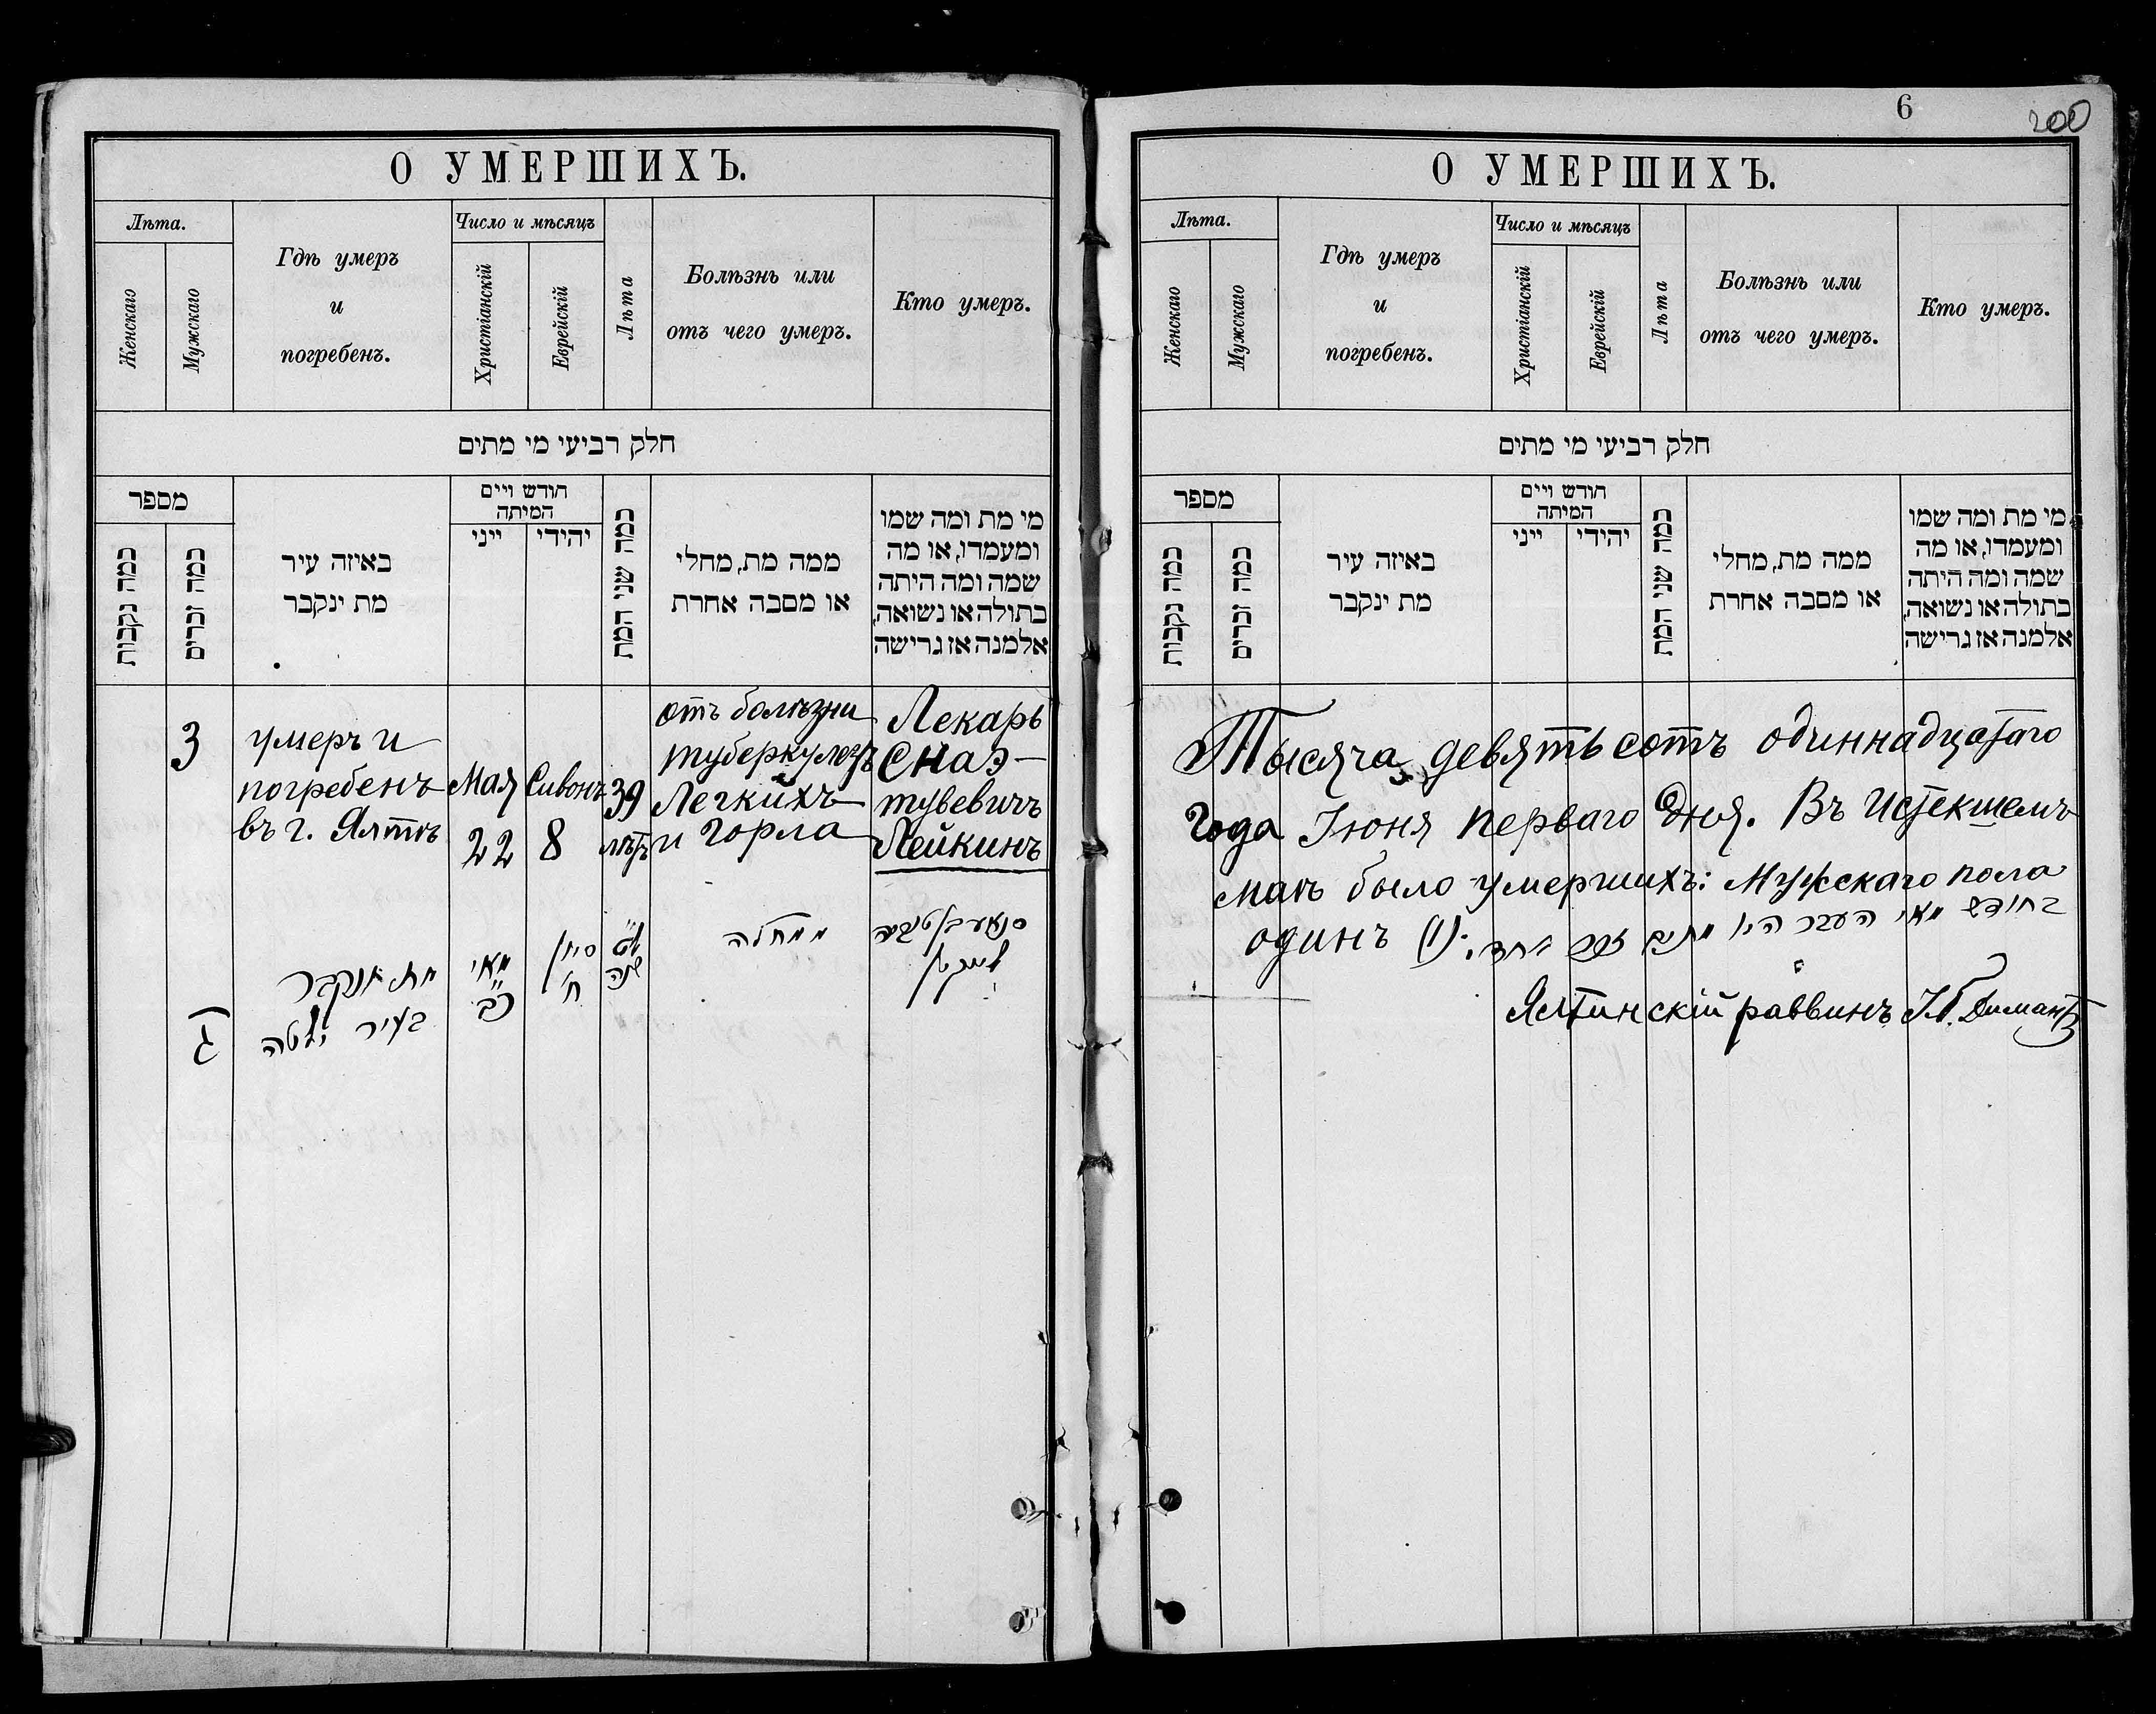 О УМЕРШИХЪ.
Лѣта.
Женскаго
Мужскаго
Гдѣ умеръ
и
погребенъ.
Число и мѣсяцъ
Христіанскій
Еврейскій
Лѣта
Болѣзнь или
отъ чего умеръ.
Кто умеръ.
חלק רביעי מי מתים
מספר
כמה נקבות
כמה זכרים
באיזה עיר
מת ינקבר
חודש ויים
המיתה
ייני
יהידי
כמה שני המת
ממה מת, מחלי
או מסבה אחרת
מי מת ומה שמו
ומעמדו, או מה
שמה ומה היתה
בתולה או נשואה,
אלמנה אז גרישה
3
умеръ и
погребенъ
въ г. Ялтѣ
Мая
22
Сивонъ
8
39
лѣтъ
отъ болѣзни
туберкулезъ
Легкихъ
и Горла
Лекарь
Снаэ-
тувевичъ
Лейкинъ
ג
מת ונקבר
בעיר יאלטה
מאי
כב
סיון
ח'
ל"ט
שנה
ממחלה
לייקין
6
200
О УМЕРШИХЪ.
Лѣта.
Женскаго
Мужскаго
Гдѣ умеръ
и
погребенъ.
Число и мѣсяцъ
Христіанскій
Еврейскій
Лѣта
Болѣзнь или
отъ чего умеръ.
Кто умеръ.
חלק רביעי מי מתים
מספר
כמה נקבות
כמה זכרים
באיזה עיר
מת ינקבר
חודש ויים
המיתה
ייני
יהידי
כמה שני המת
ממה מת, מחלי
או מסבה אחרת
מי מת ומה שמו
ומעמדו, או מה
שמה ומה היתה
בתולה או נשואה,
אלמנה אז גרישה
Тысяча девятьсотъ одиннадцатаго
Года Іюня перваго Дня. Въ Истекшемъ
маѣ было умершихъ: Мужскаго пола
одинъ (1).
בחודש מאי העבר היו מתים זכר אחד.
Ялтинскій раввинъ І.Б. Димантъ